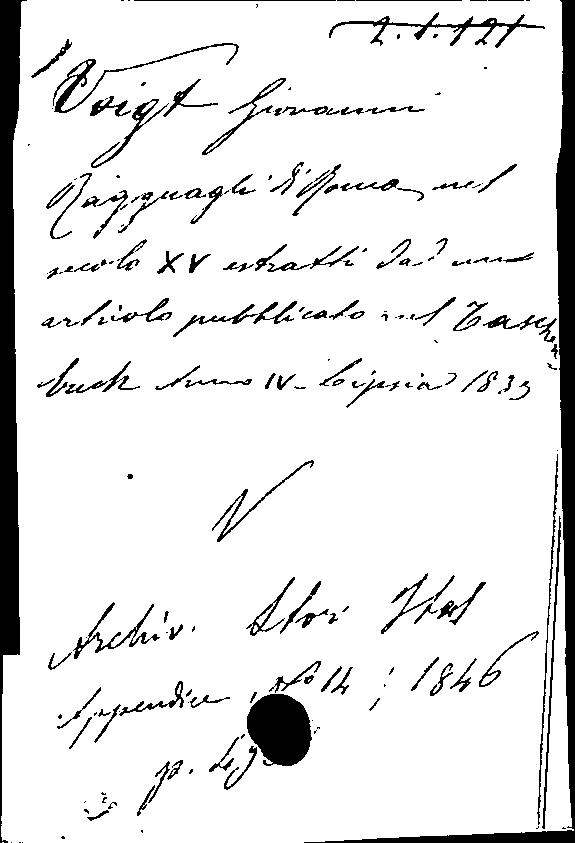 2.1.121
Voigt Giovanni
Ragguagli di Roma nel
secolo XV estratti da un
articolo pubblicato nel Taschen
buch Anno IV - Lipsia 1833
V
Archiv. Stor. Ital
Appendice No 14 ; 1846
p.